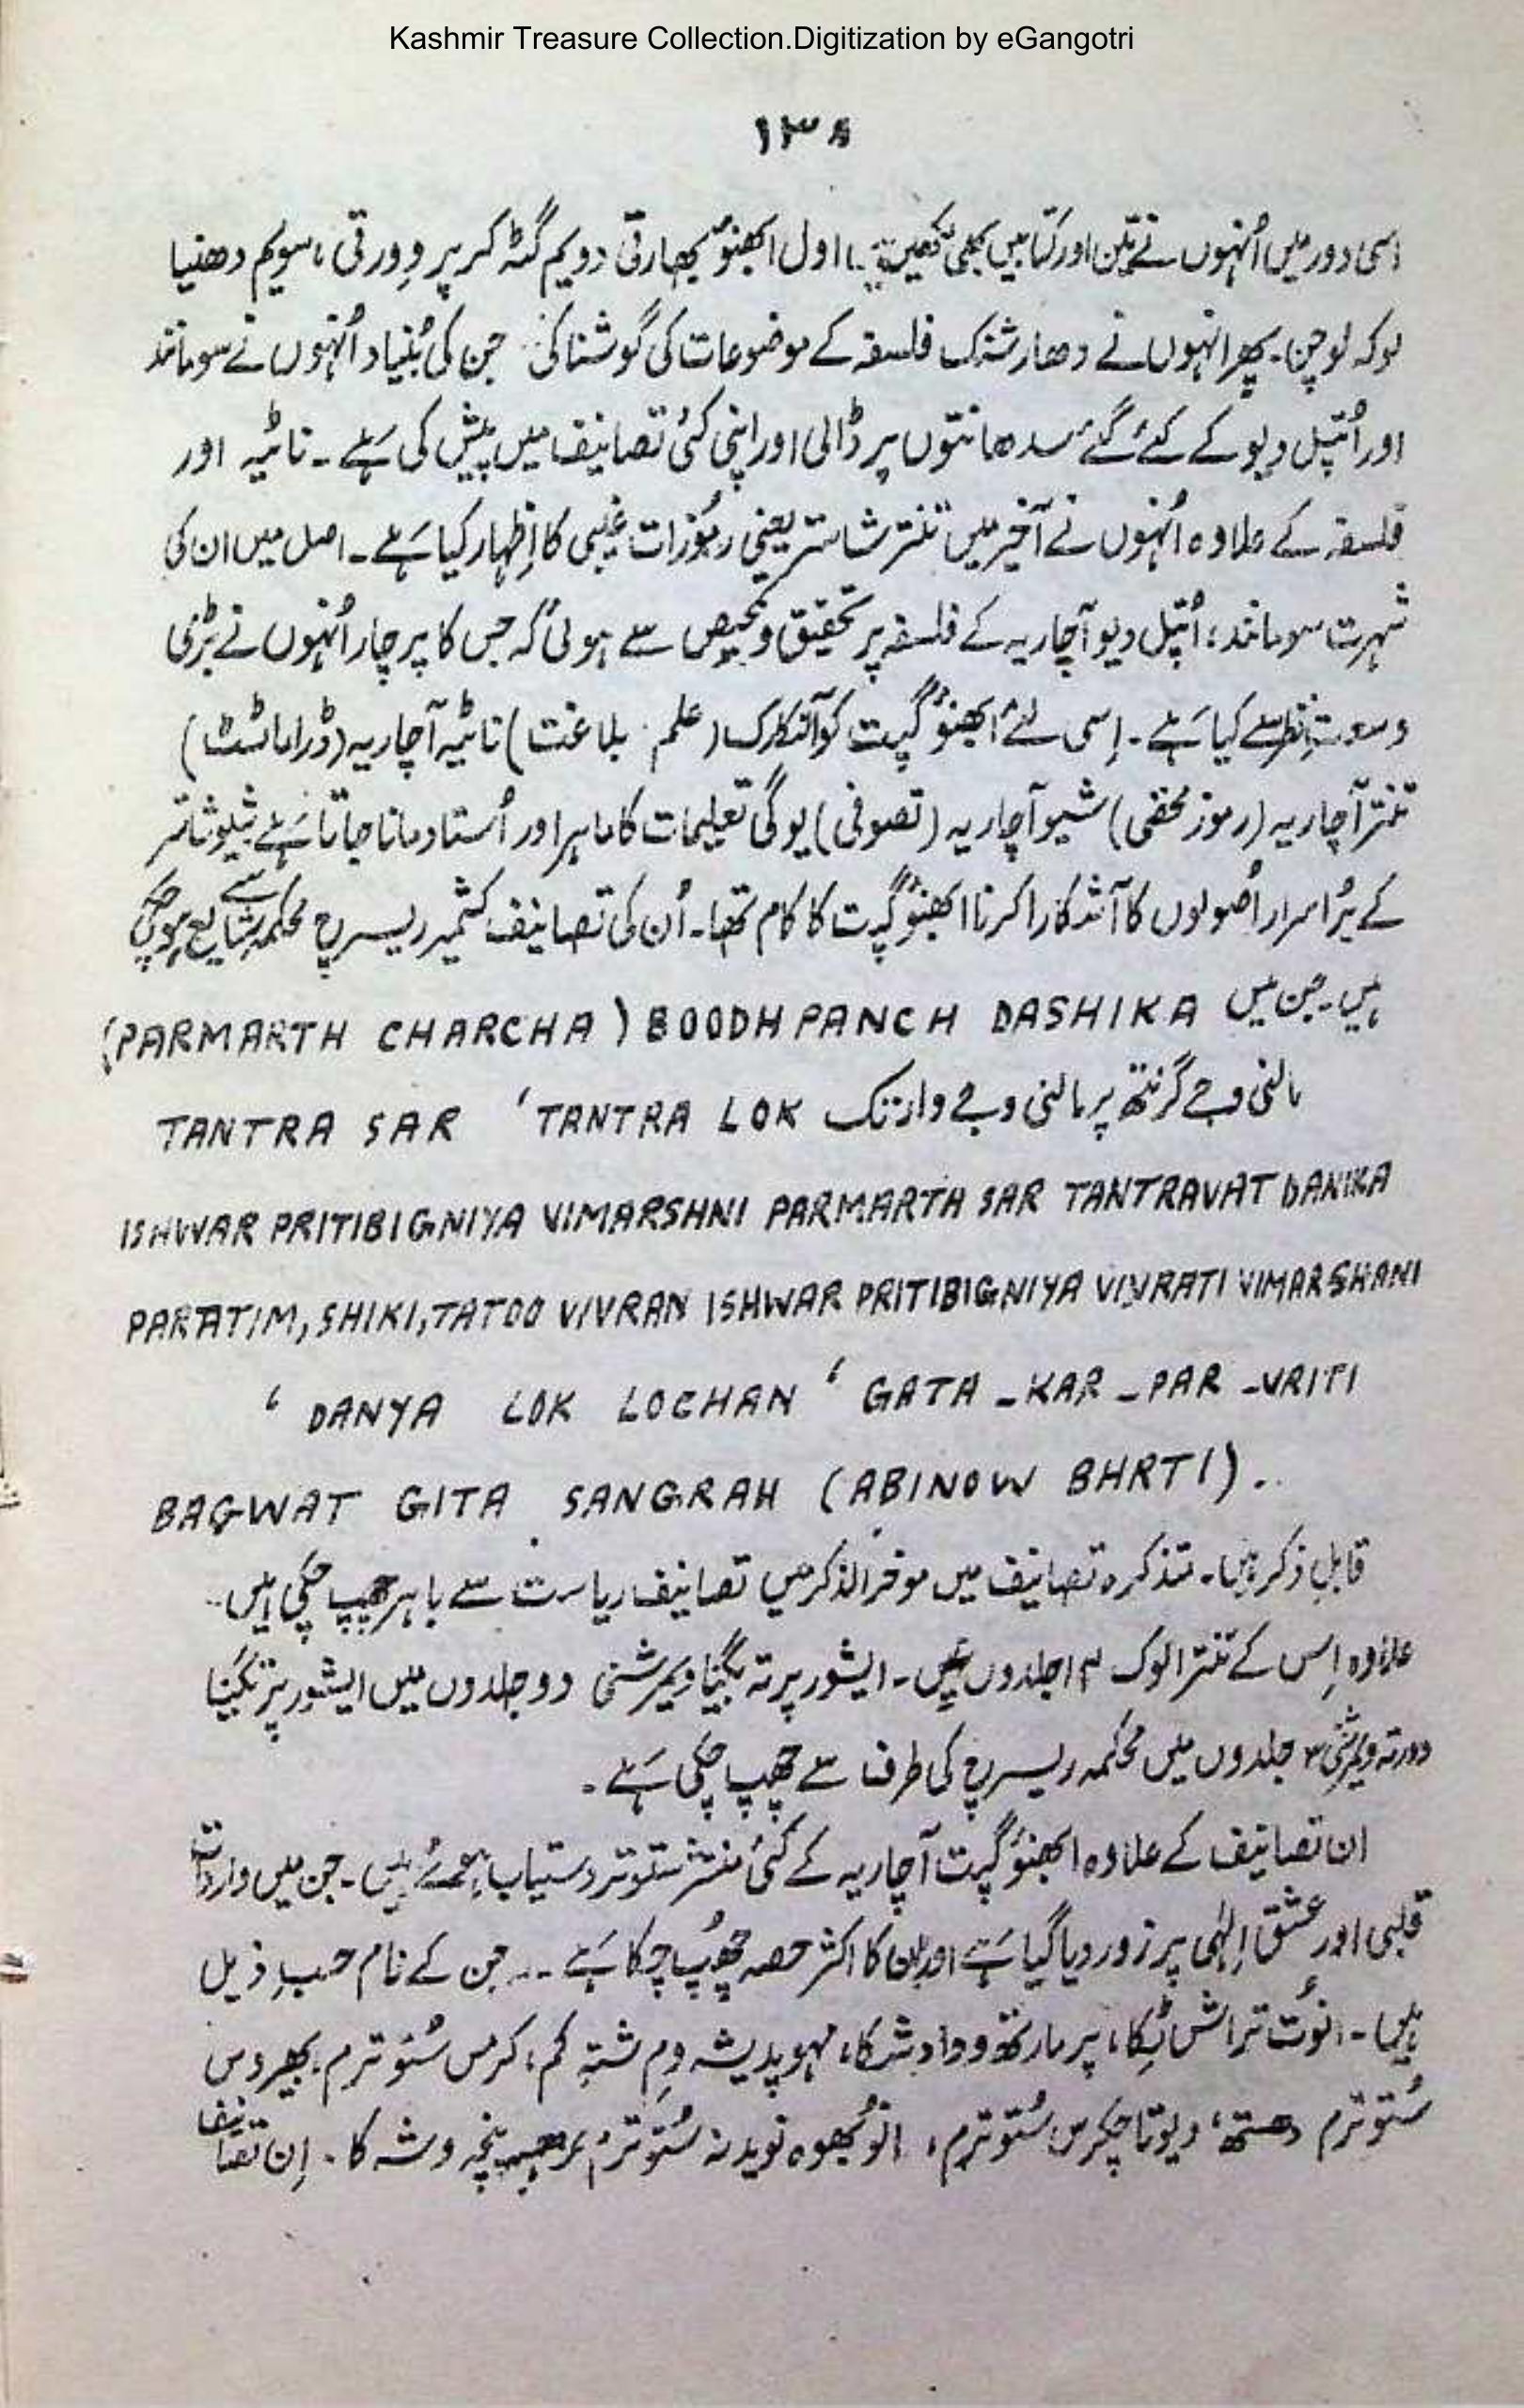 Kashmir Treasure Collection.Digitization by eGangotri
۱۳۸
اسی دور میں اُنہوں نے تین اور کتابیں بھی لکھیں۔ اول ابھنوُ بھارتی دویم گٹہ کر پر وِورتی، سویم دھنیا
لوکہ لوچن۔ پھر انہوں نے دھارشنک فلسفہ کے موضوعات کی گوشنا کی جن کی بُنیاد اُنہوں نے سومانند
اور اُتپل دیو کے کئے گئے سدھانتوں پر ڈالی اور اپنی کئی تصانیف میں پیش کی ہے۔ ناٹیہ اور
فلسفہ کے علاوہ اُنہوں نے آخیر میں تنتر شاستر یعنی رموُزات غیبی کا اِظہار کیا ہے۔ اصل میں ان کی
شہرت سومانند، اُتپل دیو آچاریہ کے فلسفہ پر تحقیق و سے ہوئی کہ جس کا پرچار اُنہوں نے بڑی
وسعت نظر سے کیا ہے۔ اِسی لئے ابھنوُ گپت کو النکارک (علم بلاغت) ناٹیہ آچاریہ (ڈراماٹسٹ)
تنتر آچاریہ (رموز مخفی) شیو آچاریہ (تصوفی) یوگی تعلیمات کا ماہر اور اُستاد مانا جاتا ہے شیو شاستر
کے پُراسرار اُصولوں کا آشکارا کرنا ابھنوُ گپت کا کام تھا۔ اُن کی تصانیف کشمیر ریسرچ محکمہ سے شایع ہو چکی
ہیں۔ جن میں BOODH PANCH DASHIKA (PARMARTH CHARCHA)
مالنی وجے گرنتھ پر مالنی وجے وارتک TANTRA LOK ‘ TANTRA SAR
ISHWAR PRITIBIGNIYA VIMARSHNI PARMARTH SAR TANTRAVAT DANIKA
PARATIM, SHIKI, TATOO VIVRAN ISHWAR PRITIBIGNIYA VIVRATI VIMARSHANI
‘ DANYA LOK LOCHAN ‘ GATA-KAR-PAR-VRITI
BAGWAT GITA SANGRAH (ABINOW BHRTI)..
قابلِ ذکر ہیں۔ تذکرہ تصانیف میں موخرالذکر میں تصانیف ریاست سے باہر چھپ چکی ہیں۔
علاوہ اِس کے تنترالوک ۱۴ جلدوں میں۔ ایشور پرتہ بگنیا ویمرشنی دو جلدوں میں ایشور پرتبگنیا
وورتہ ویمرشنی ۳ جلدوں میں محکمہ ریسرچ کی طرف سے چھپ چکی ہے۔
ان تصانیف کے علاوہ ابھنوُ گپت آچاریہ کے کئی منتشر ستوتر دستیاب ہوئے ہیں۔ جن میں واردات
قلبی اور عشق اِلٰہی پر زور دیا گیا ہے اور ان کا اکثر حصہ چھُپ چکا ہے۔۔۔ جن کے نام حسبِ ذیل
ہیں۔ انوُت تراش ٹِکا، پرمارتھ ودادشکا، مہوپدیشہ وِم شتہِ کم، کرمس سُتوترم، بھیروس
سُتوترم دیوتا چکرس سُتوترم، انوُبھوہ نویدنہ سُتوترم پنچہ وشہ کا۔ اِن تصانیف